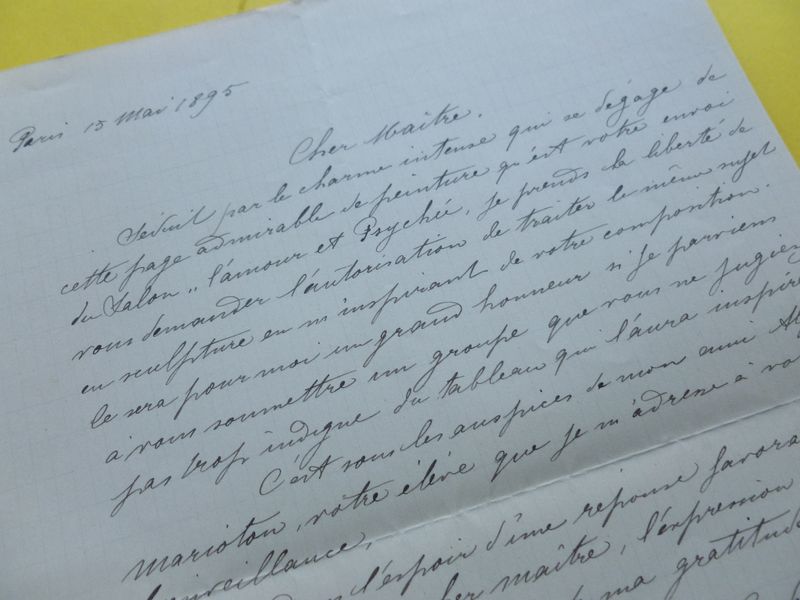 Paris 15 Mai 1895
Cher Maître.
Séduit par le charme intense qui se dégage de
cette page admirable de peinture qu'est votre envoi
du Salon „ l'amour et Psychée, je prends la liberté de
vous demander l'autorisation de traiter le même sujet
en sculpture en m'inspirant de votre composition.
Ce sera pour moi un grand honneur si je parviens
à vous soumettre un groupe que vous ne jugiez
pas trop indigne du tableau qui l'aura inspiré
C'est sous les auspices de mon ami
Marioton, votre élève que je m'adresse à
l'espoir d'une réponse
maître, l'expression
ma gratitude